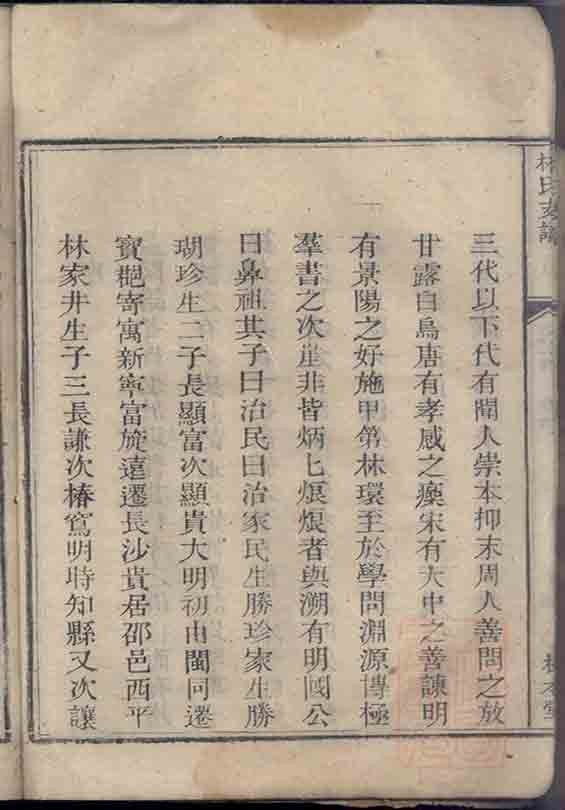 林氏支譜
三代以下代有聞人崇本抑末周人善問之放
甘露白烏唐有孝感之瘼宋有大中之善諫明
有景陽之好施甲第林環至於學問淵源博極
羣書之次崖非皆炳匕烺烺者與溯有明國公
曰鼻祖其子曰治民曰治家民生勝珍家生勝
瑚珍生二子長顯富次顯貴大明初由閩同遷
寶郡寄寓新寧富旋遠遷長沙貴居邵邑西平
林家井生子三長謙次椿寫明時知縣又次讓